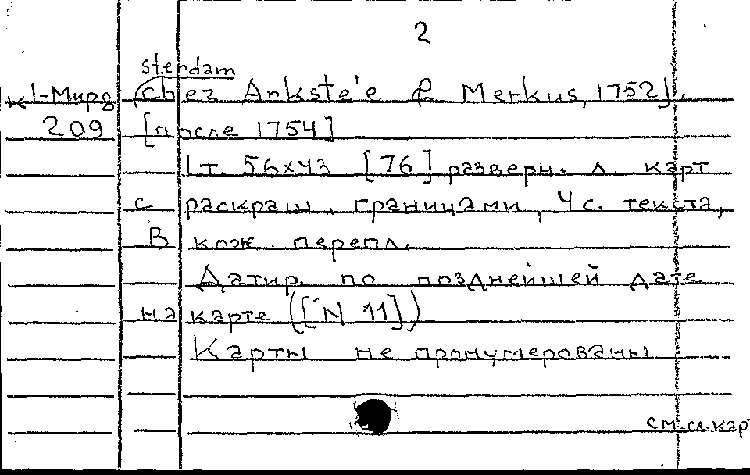 2
sterdam
к 1-Мирд chez Arkste'e & Merkus, 1752].
209 [после 1754]
1 т. 56x43 [76] разверн. л. карт
с раскраш. границами, 4 с. текста,
В кож. перепл.
Датир. по позднейшей дате
на карте ([N 11])
Карты не пронумерованы
см. сл. кар